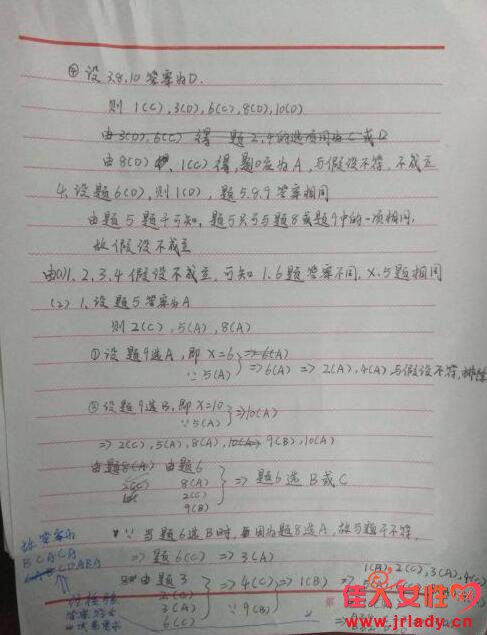 ④ 设 3.8.10 答案为D.
则 1(C), 3(D), 6(C), 8(D), 10(D)
由 3(D), 6(C) 得 题2,4的选项同为C或D
由 8(D) 1(C) 得, 题10应为A, 与假设不符, 不成立
4. 设题6(D), 则1(D), 题5.8.9答案相同
由题5题干可知, 题5只可与题8或题9中的一项相同,
故假设不成立
由(1)1.2.3.4假设不成立, 可知1.6题答案不同, X.5题相同
(2) 1. 设题5答案为A
则 2(C), 5(A), 8(A)
① 设题9选A, 即 X=6 ⇒6(A)
∵5(A) ⇒6(A) ⇒ 2(A), 4(A) 与假设不符, 排除
② 设题9选B, 即 X=10
∵5(A) ⇒10(A)
⇒ 2(C), 5(A), 8(A), 9(B), 10(A)
由题8(A) 由题6
2(C) 8(A)
2(C) ⇒ 题6选B或C
9(B)
∵ 当题6选B时, 因为题8选A, 故与题干不符,
⇒ 题6(C) ⇒ 3(A)
由题3
3(A) ⇒ 4(C) ⇒ 1(B)
6(C) ∵ 9(B)
1(A), 2(C), 3(A), 4(C)
故答案为
BCACA
CDABA
经检验
答案符合
佳人女性网
www.jrlady.com